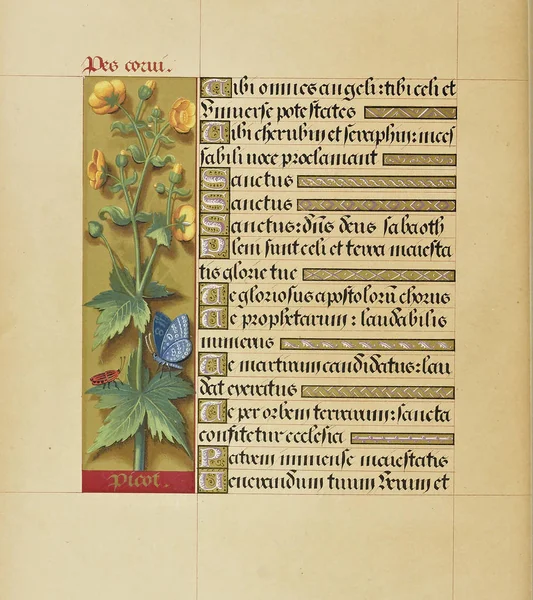 Pes corui.
Tibi omnes angeli: tibi celi et
Vniuerse potestates
Tibi cherubin et seraphin: inces
sabili uoce proclamant
Sanctus
Sanctus
Sanctus: dn̄s deus sabaoth
Pleni sunt celi et terra maiesta
tis glorie tue
Te gloriosus apostolorū chorus
Te prophetarum: laudabilis
numerus
Te martirum candidatus: lau
dat exercitus
Te per orbem terrarum: sancta
confitetur ecclesia
Patrem immense maiestatis
Uenerandum tuum Verum et
Picot.